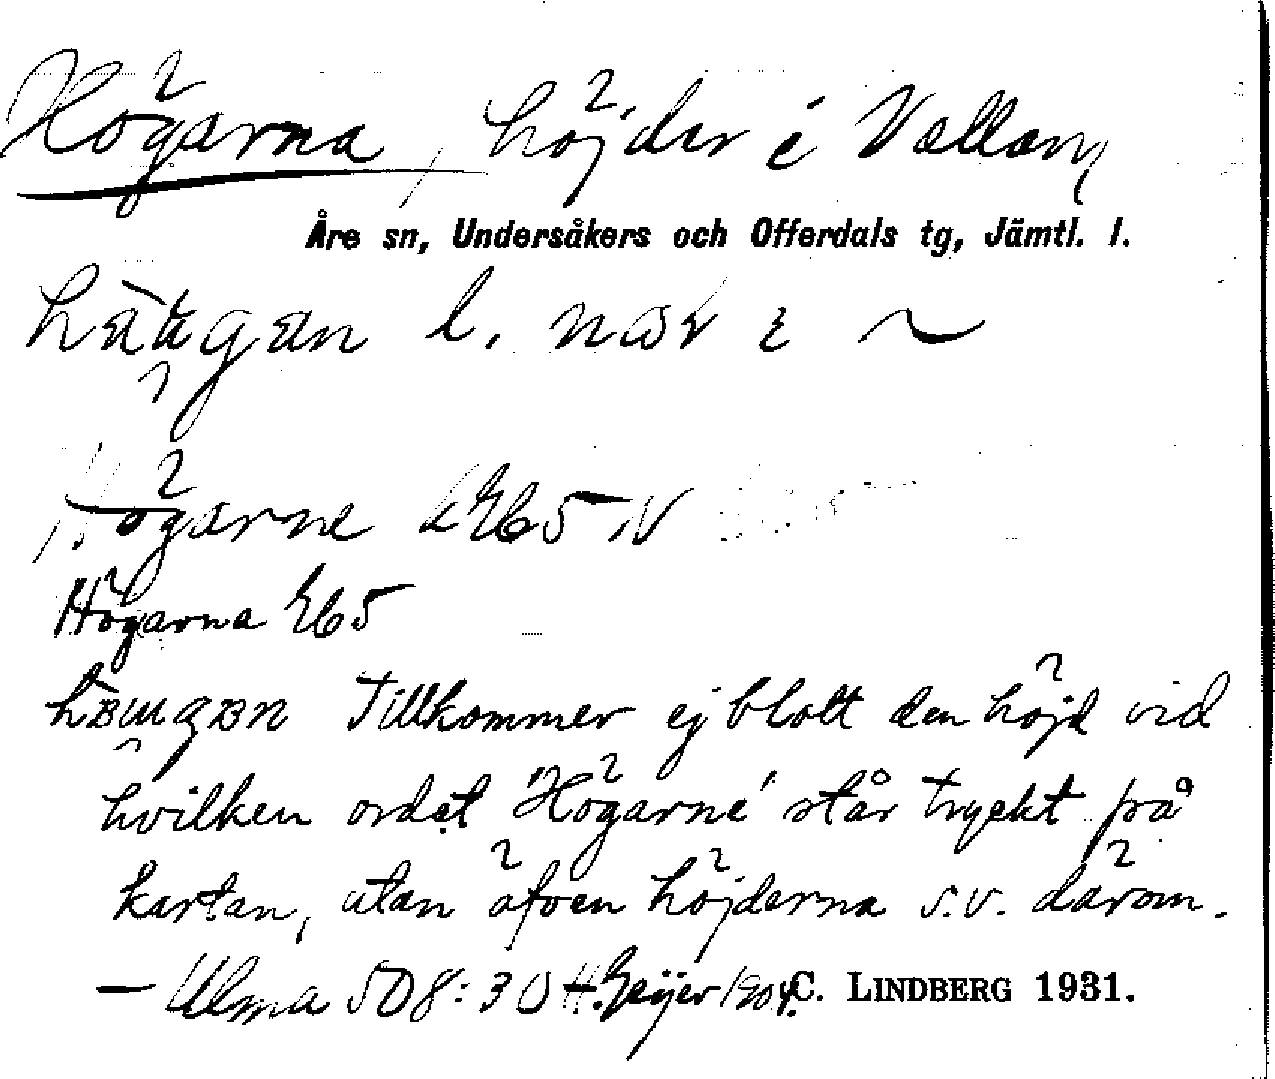 Högarna, höjder i Vallan,
Åre sn, Undersåkers och Offerdals tg, Jämtl. l.
l. nær
Högarne
Högarna
Tillkommer ej blott den höjd vid
hvilken ordet "Högarne" står tryckt på
kartan, utan äfven höjderna s.v. därom.
— Ulma 508:30 H. Geijer 1904. C. LINDBERG 1931.